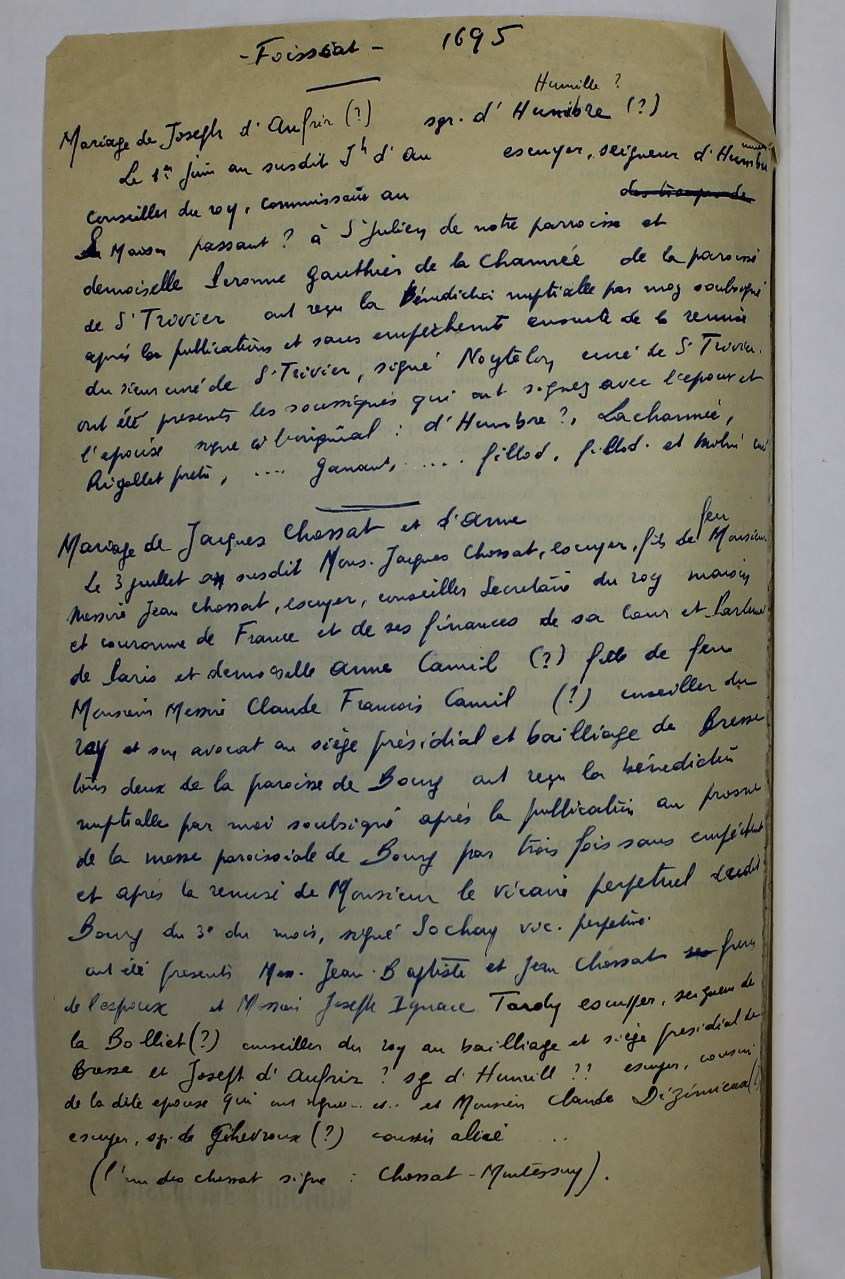 - Foissiat - 1695
Humille ?
Mariage de Joseph d'Aufrir (?) sgr. d'Humbre (?)
Le 1er juin au susdit Jh d'Au escuyer, seigneur d'Humbre
conseiller du roy, commissaire au
Maison passant ? à St Julien de notre parroisse et
demoiselle Gauthier de la Charmée de la paroisse
de St Trivier ont reçu la bénédiction nuptialle par moy soubsigné
après les publications et sans empechemt ensuite de la remise
du sieur curé de St Trivier, signé curé de St Trivier.
ont été présents les soussignés qui ont signez avec l'epoux et
l'epouse signé à l'original : d'Humbre ?, Lacharmée,
Rigollet pretre, .... Ganant, ..... fillod, fillod. et curé
Mariage de Jacques Chossat et d'anne
Le 3 juillet au susdit Mons. Jacques Chossat, escuyer, fils de feu Monsieur
Messire Jean Chossat, escuyer, conseiller Secretaire du roy maison
et couronne de France et de ses finances de sa Cour et Parlement
de Paris et demoiselle anne Camil (?) fille de feu
Monsieur Messire Claude François Camil (?) conseiller du
roy et son avocat au siège présidial et bailliage de Bresse
tous deux de la paroisse de Bourg ont reçu la bénédiction
nuptialle par moi soubsigné après la publication au prosne
de la messe paroissiale de Bourg par trois fois sans empéchemt
et après la remise de Monsieur le vicaire perpetuel dudit
Bourg du 3e du mois, signé Sochay vic. perpetuel.
ont été présents Mess. Jean-Baptiste et Jean Chossat freres
de l'espoux et Messire Joseph Ignace Tardy escuyer, seigneur de
la Bolliet (?) conseiller du roy au bailliage et siége présidial de
Bresse et Joseph d'Aufrir ? sg d'Humill ?? escuyer, cousin
de la dite epouse qui ont signé .. et .. et Monsieur Claude (?)
escuyer, sgr. de (?) cousin alié ..
(l'un des chossat signe : Chossat-Montessuy).